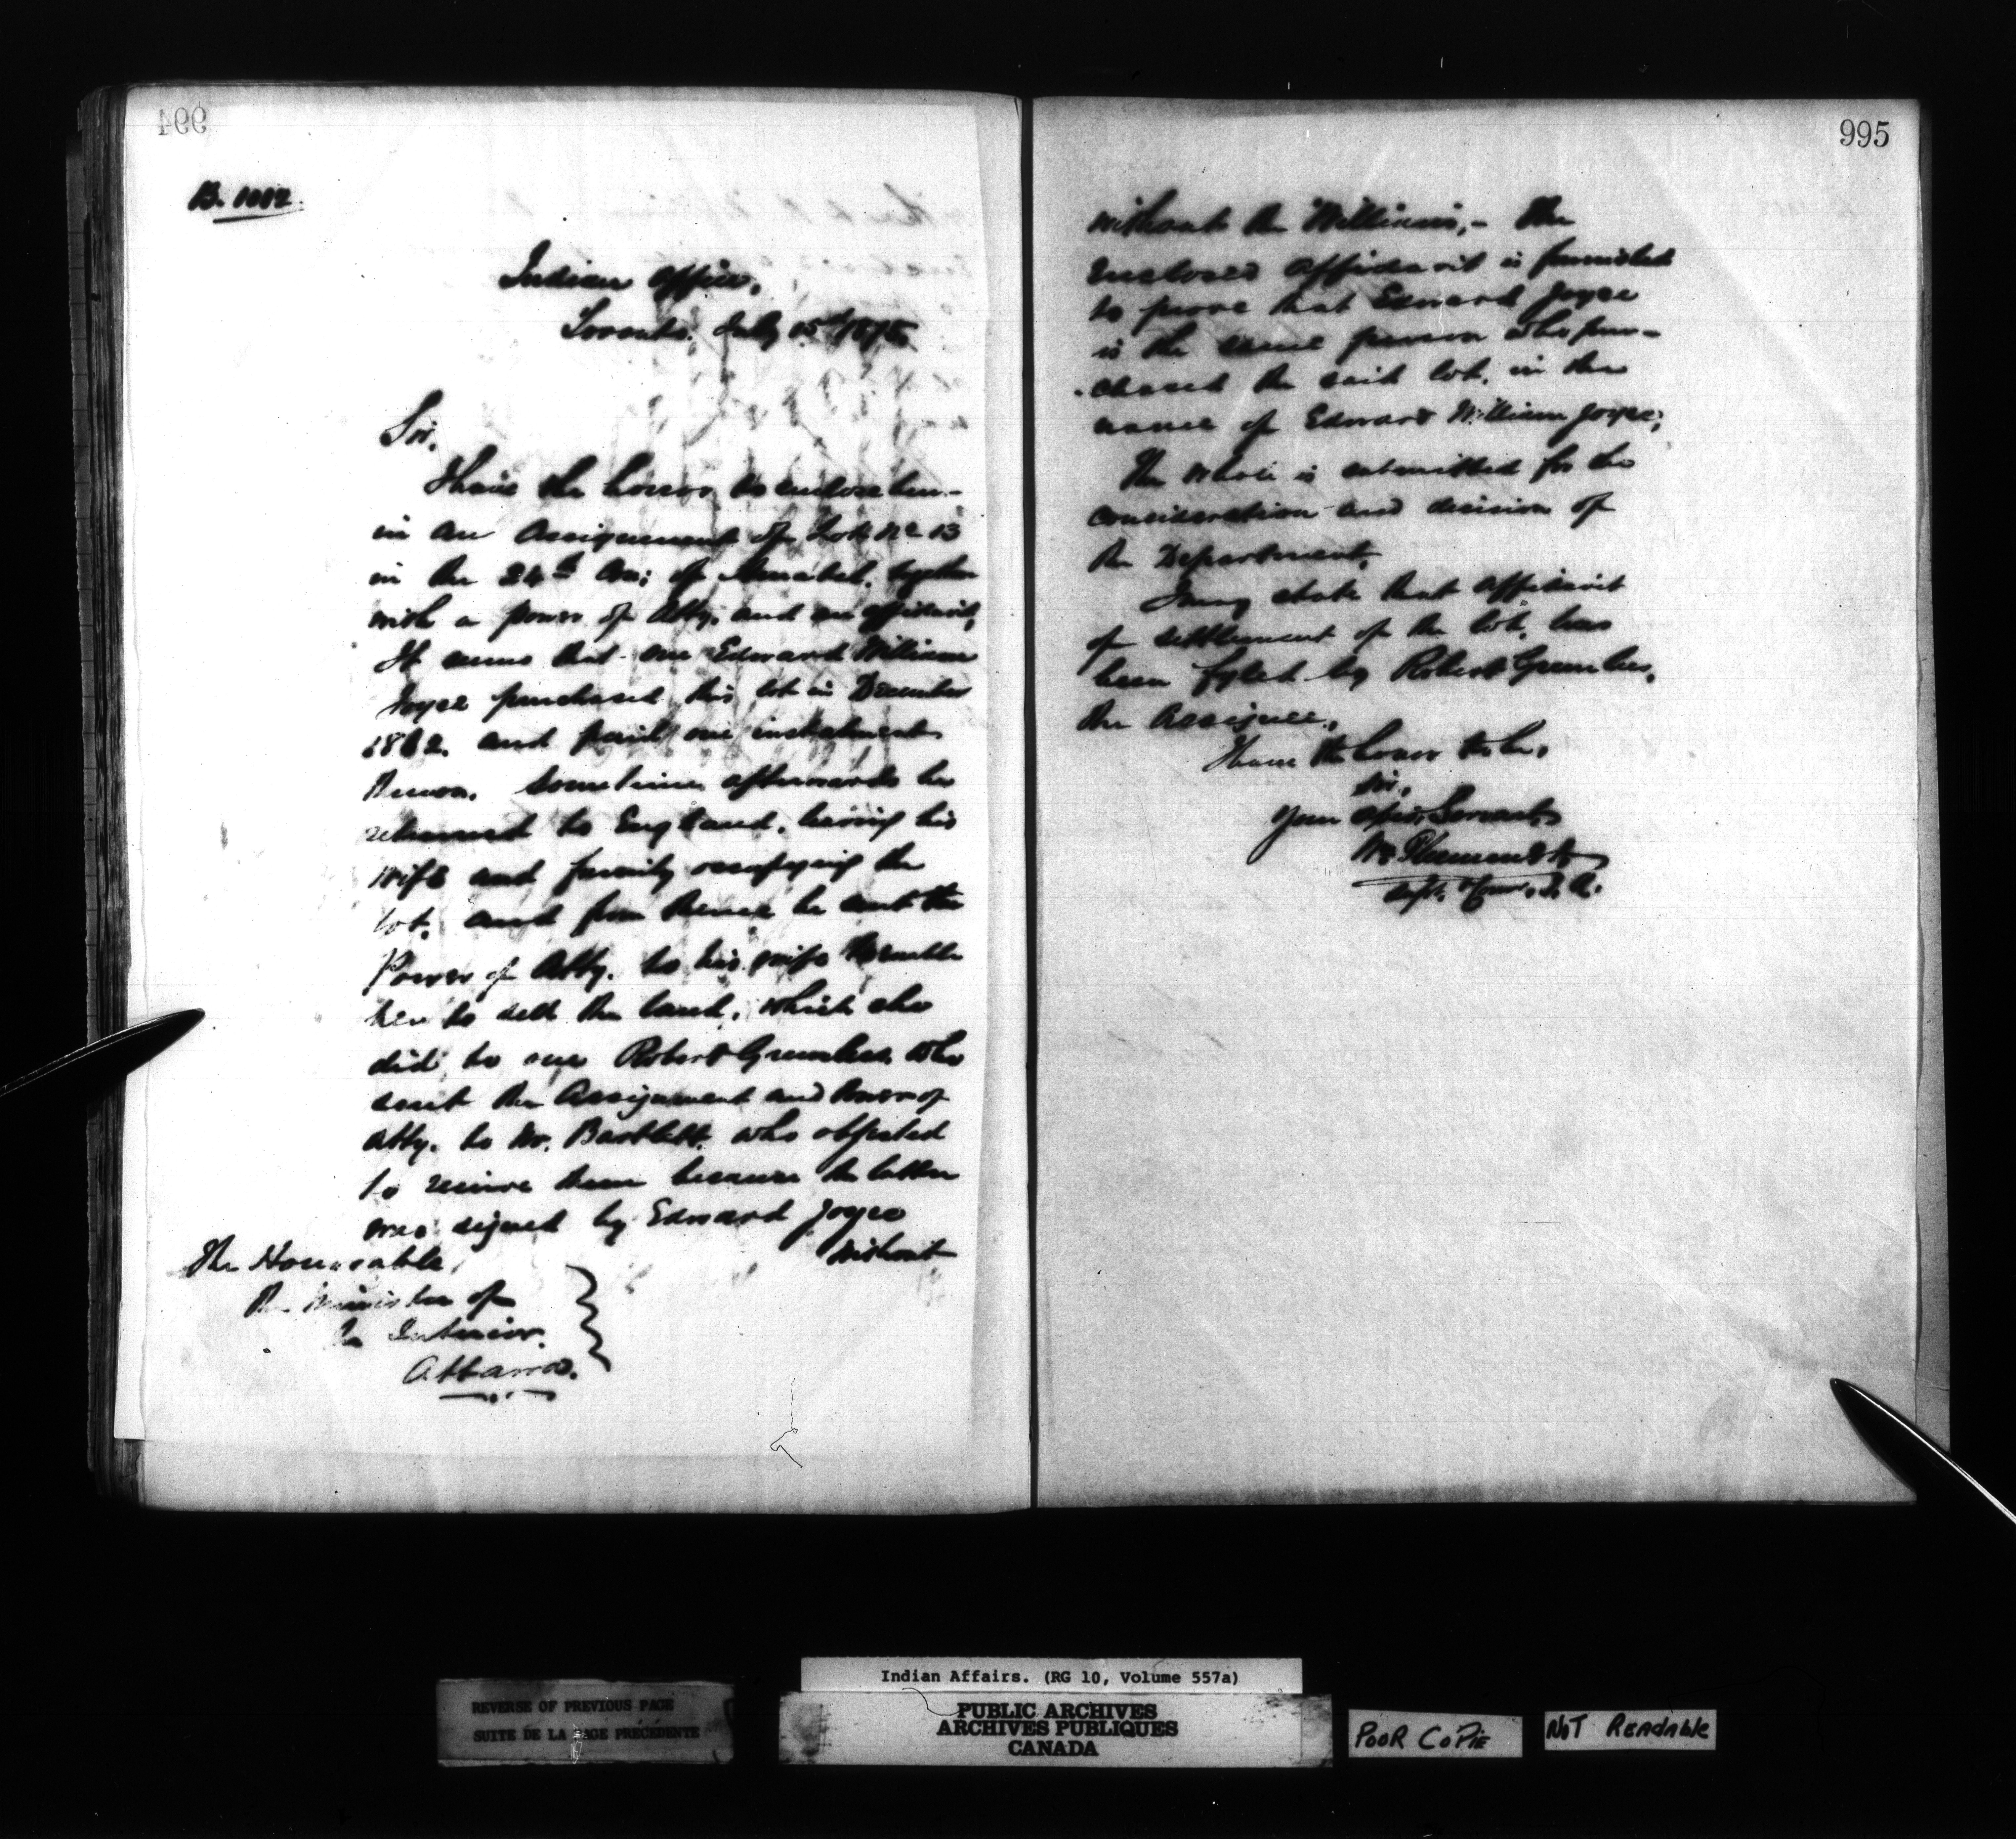 994
B. 1002
Indian Office,
Toronto, July 15th 1875
Sir,
I have the honor to enclose here-
in an Assignment of Lot No 13
in the 24th Con; of Amabel, together
with a power of Atty. and an affidavit,
It seems that one Edward William
Joyce purchased this lot in December
1862. and paid one instalment
thereon. Sometime afterwards he
returned to England, leaving his
wife and family occupying the
lot. and from thence he sent the
Power of Atty. to his wife to enable
her to sell the land, which she
did, to one Robert Grumbes, who
sent the Assignment and Power of
Atty. to Mr. Bartlett, who objected
to receive them because the latter
was signed by Edward Joyce
without
The Honorable,
The Minister of
the Interior.
Ottawa.
995
without the William,- The
enclosed affidavit is furnished
to prove that Edward Joyce
is the same person who pur-
-chased the said lot, in the
name of Edward William Joyce;
The whole is submitted for the
consideration and decision of
the Department.
I may state that affidavit
of settlement of the lot, has
been fyled by Robert
the Assignee.
I have the honor to be,
Sir,
Your Servant,
Wm Plummer
Indian Affairs. (RG 10, Volume 557a)
REVERSE OF PREVIOUS PAGE
SUITE DE LA PAGE PRÉCÉDENTE
PUBLIC ARCHIVES
ARCHIVES PUBLIQUES
CANADA
POOR COPIE
NOT READABLE